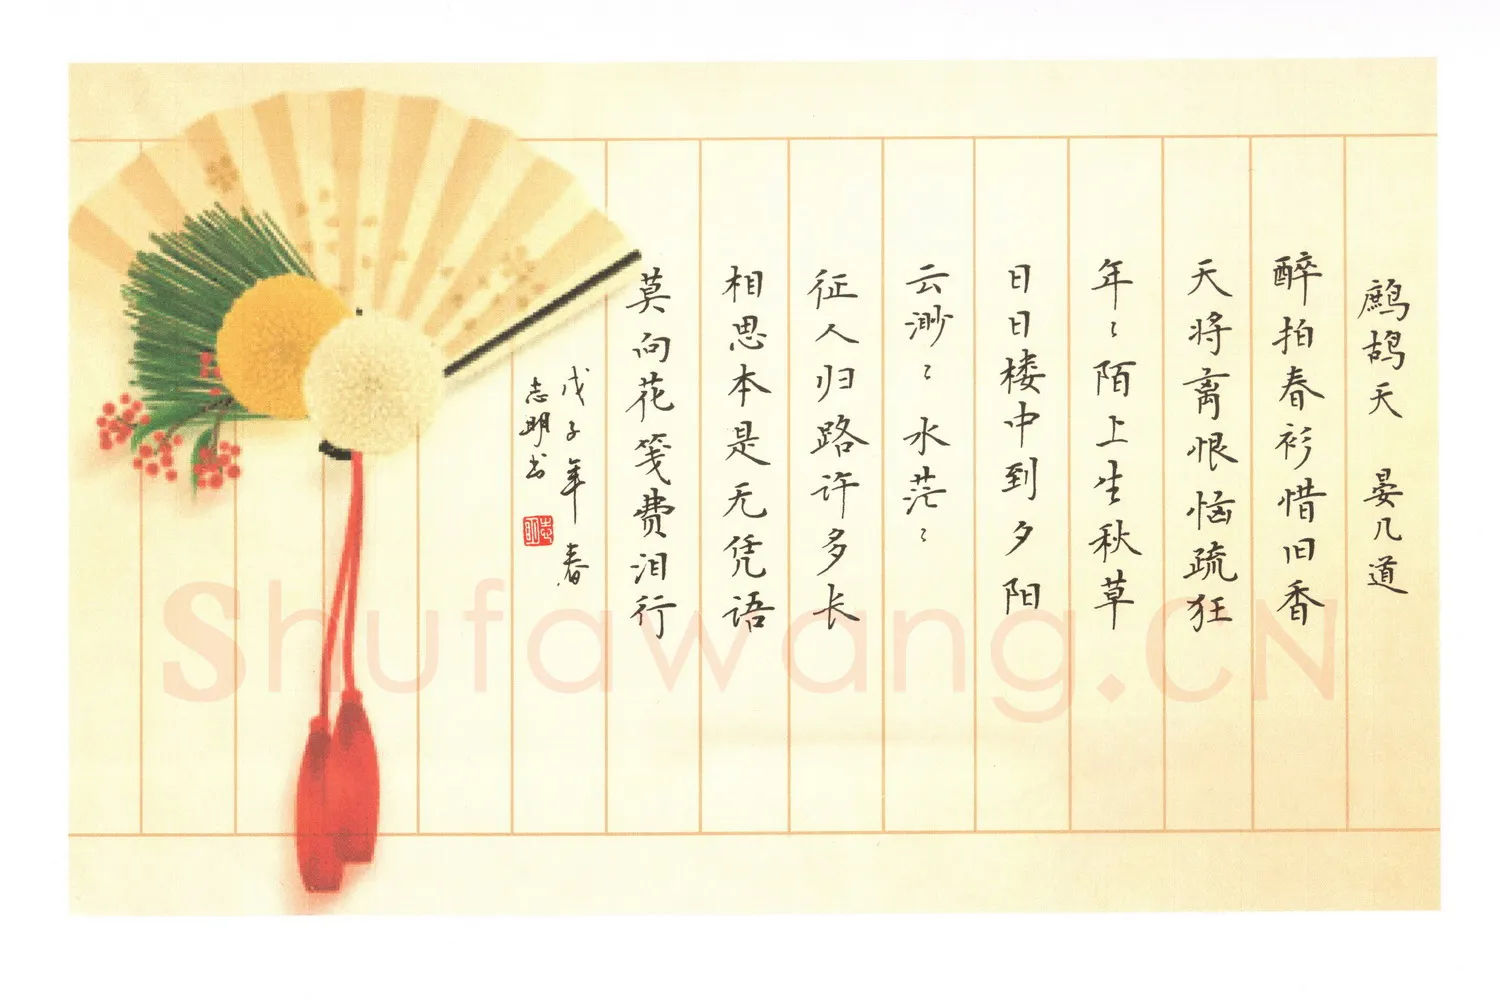 鹧鸪天 晏几道
醉拍春衫惜旧香
天将离恨恼疏狂
年〻陌上生秋草
日日楼中到夕阳
云渺〻水茫〻
征人归路许多长
相思本是无凭语
莫向花笺费泪行
戊子年春
志明书
志明
Shufawang.CN